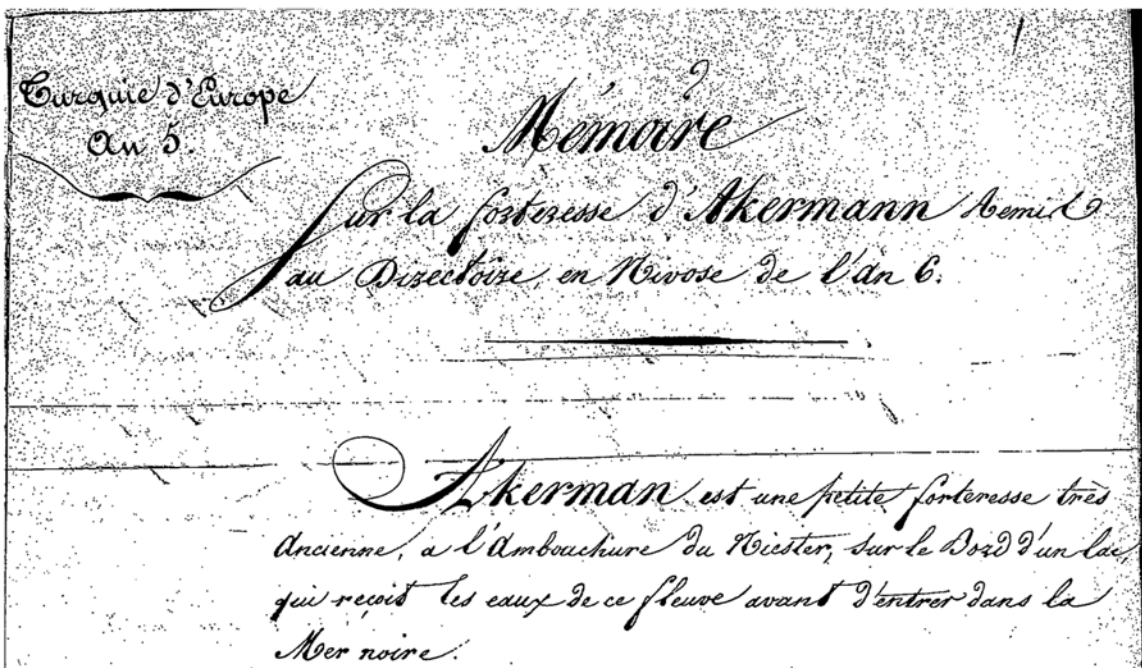 Turquie d'Europe
An 5.
Mémoire
Sur la forteresse d'Akermann Remis
au Directoire, en Nivose de l'An 6.
Akerman est une petite forteresse très
Ancienne, a l'Ambouchure du Niester, sur le Bord d'un lac
qui reçoit les eaux de ce fleuve avant d'entrer dans la
Mer noire.